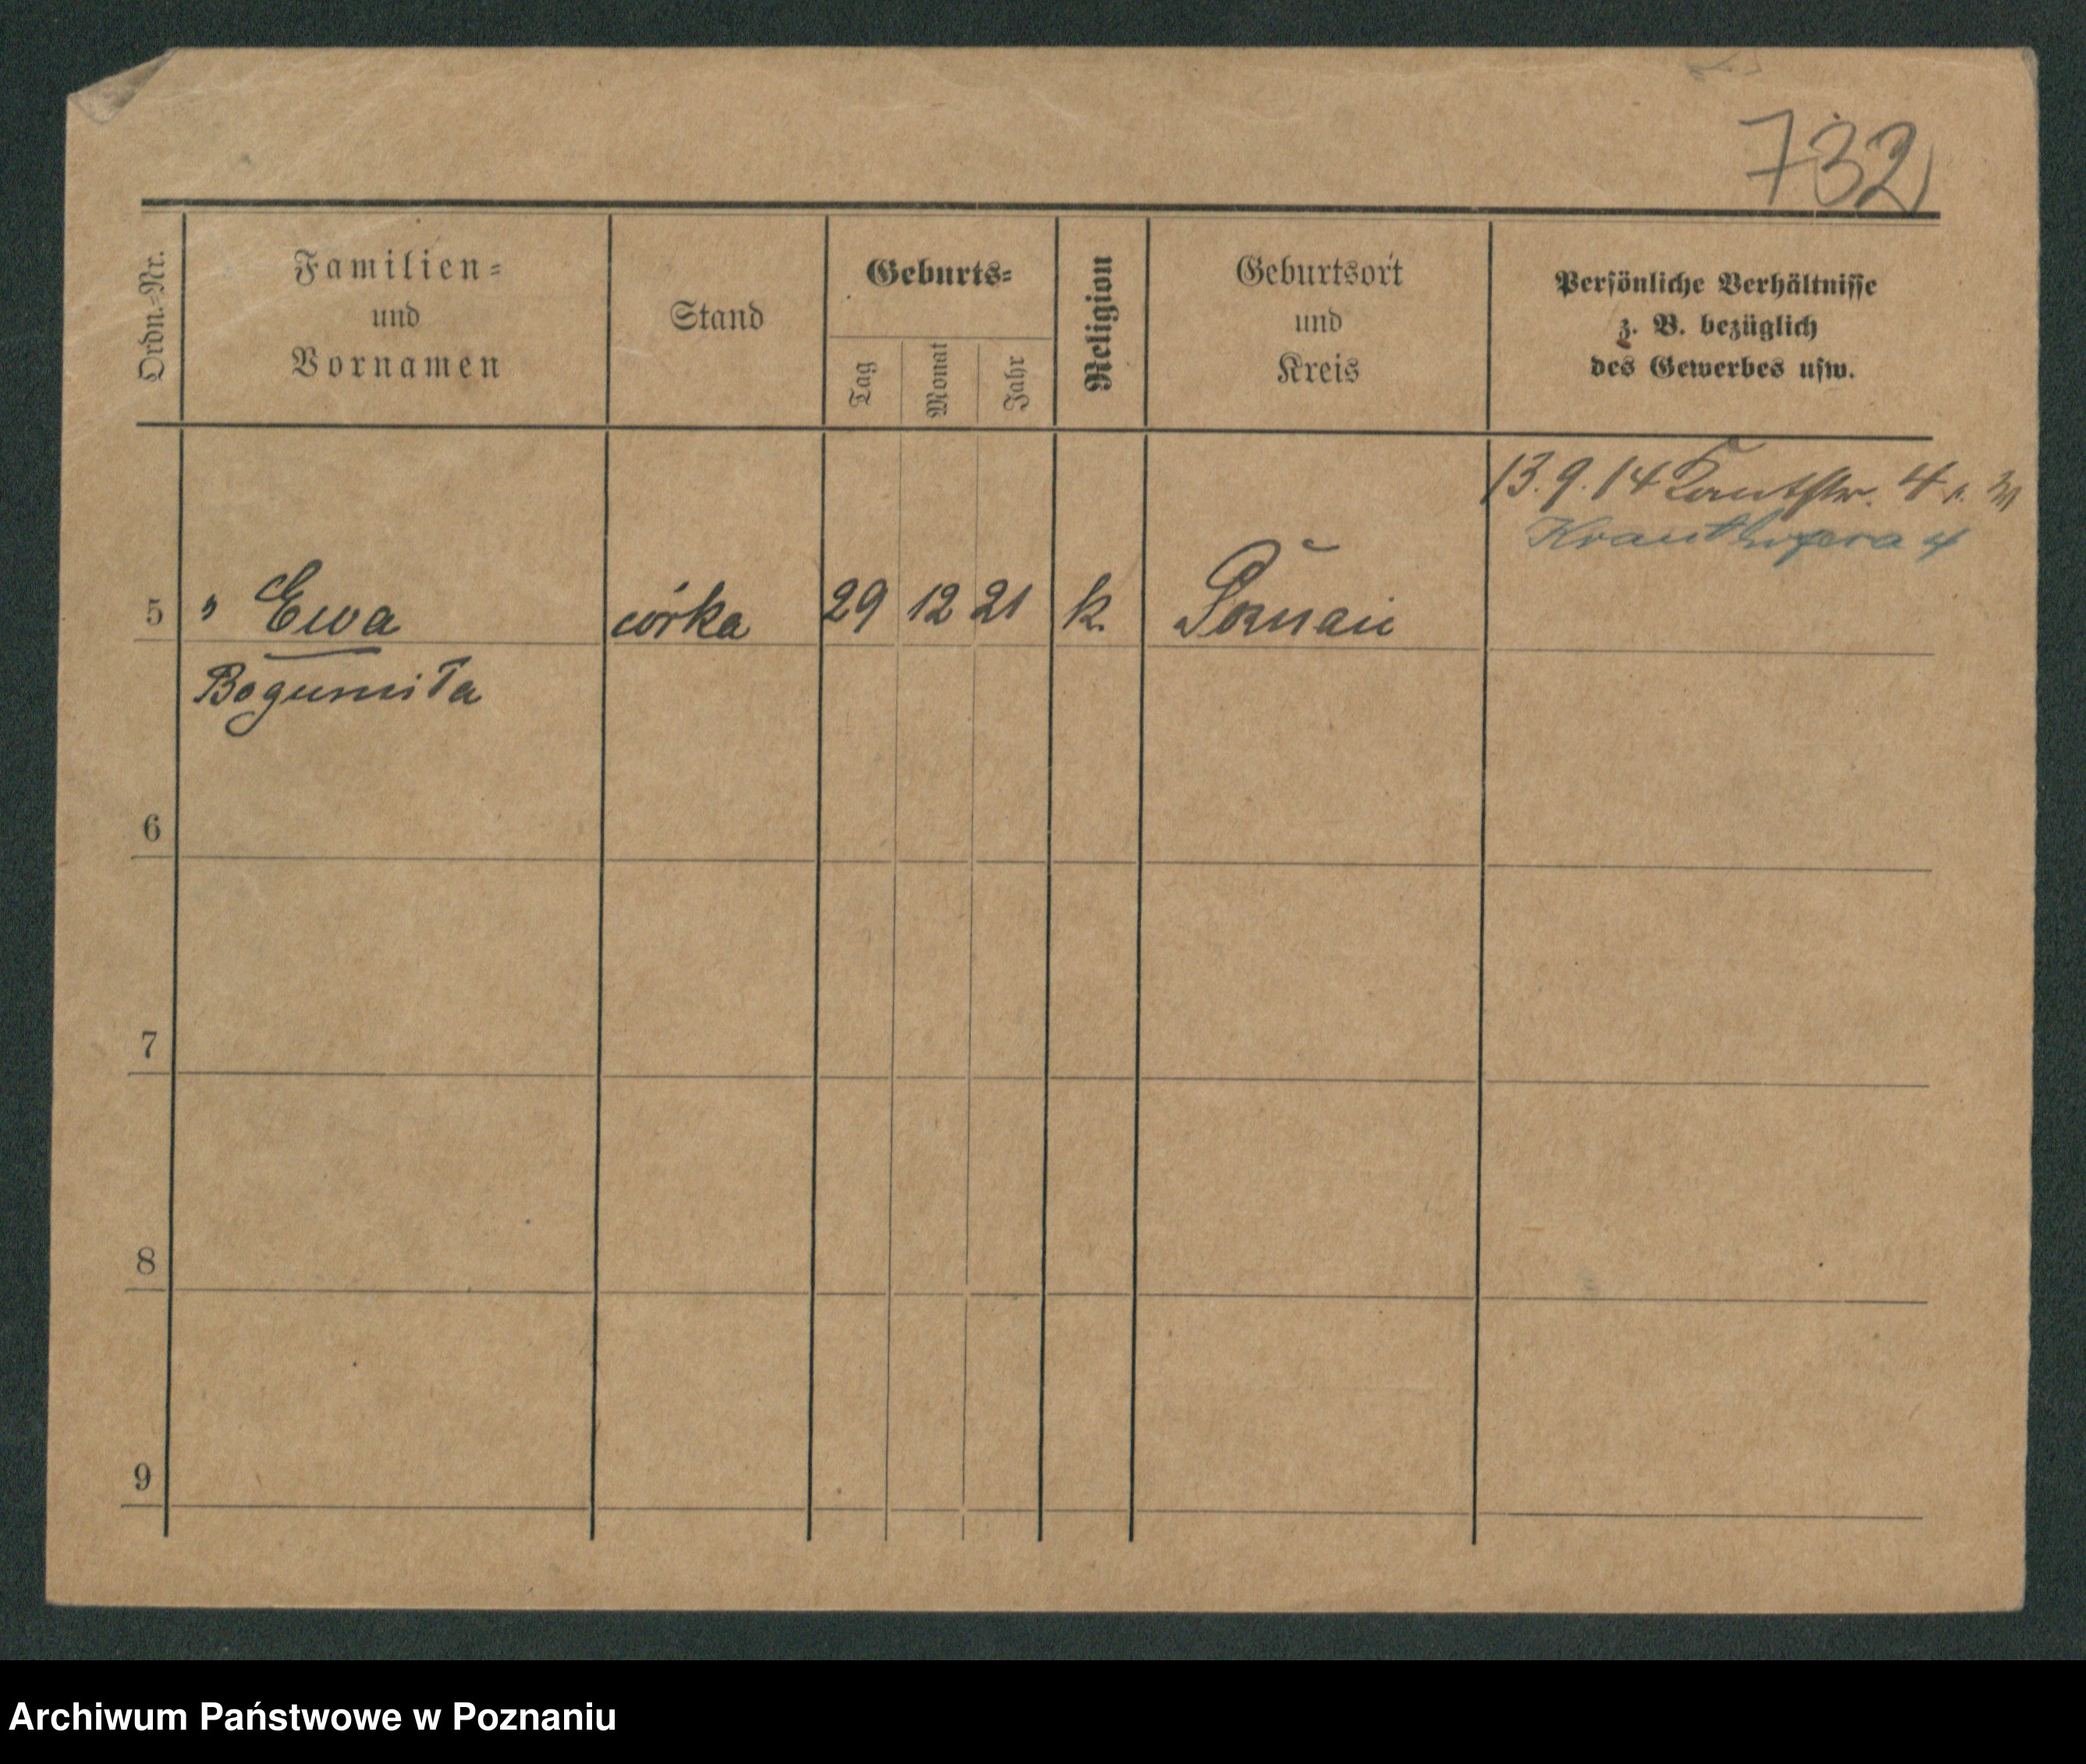 732
Ordn.=Nr.
Familien=
und
Vornamen
Stand
Geburts=
Tag
Monat
Jahr
Religion
Geburtsort
und
Kreis
Persönliche Verhältnisse
z. B. bezüglich
des Gewerbes usw.
13.9.14 4
Krauthofera 4
5 " Ewa córka 29 12 21 k. Poznań
Bogumiła
6
7
8
9
Archiwum Państwowe w Poznaniu